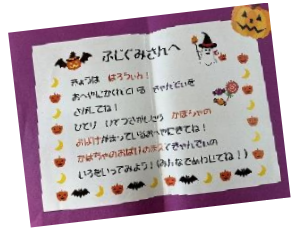 ふじぐみさんへ
きょうは はろうぃん！
おへやにかくれている きゃんでぃを
さがしてね！
ひとり 1つさがしたら かぼちゃの
おばけがまっているおへやにきてね！
かぼちゃのおばけの きゃんでぃの
いろをいってみよう！（みんなでめわじてね！）